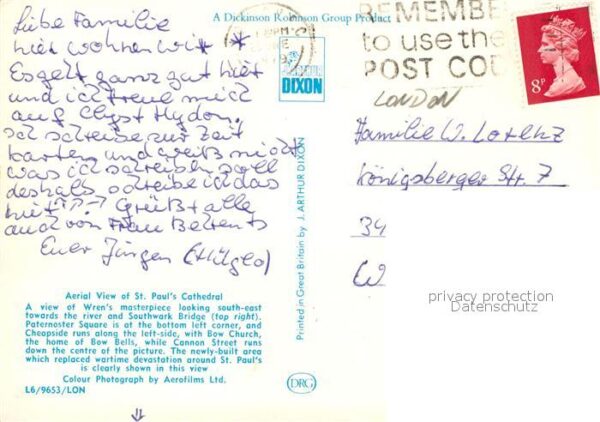 A Dickinson Robinson Group Product
Liebe Familie
hier wohnen wir *
Es geht ganz gut hier
und ich freue mich
auf Clyst Hydon.
Ich schreibe zur Zeit
Karten, und weiß nicht
was ich schreiben soll
deshalb schreibe ich das
hier. Grüßt alle
auch von Frau
Euer Jürgen
REMEMBER
to use the
POST COD
8P
ARTHUR
DIXON
LONDON
Familie W. Lorenz
Königsberger Str. 7
34
W
privacy protection
Datenschutz
Printed in Great Britain by J. ARTHUR DIXON
Aerial View of St. Paul's Cathedral
A view of Wren's masterpiece looking south-east
towards the river and Southwark Bridge (top right).
Paternoster Square is at the bottom left corner, and
Cheapside runs along the left-side, with Bow Church,
the home of Bow Bells, while Cannon Street runs
down the centre of the picture. The newly-built area
which replaced wartime devastation around St. Paul's
is clearly shown in this view
Colour Photograph by Aerofilms Ltd.
L6/9653/LON
DRG